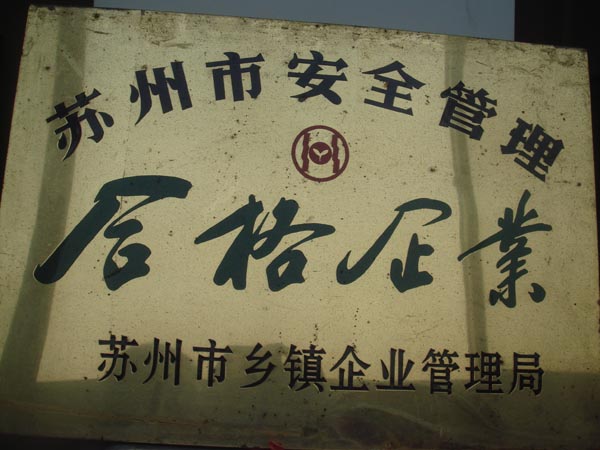 苏州市安全管理
合格企業
苏州市乡镇企业管理局